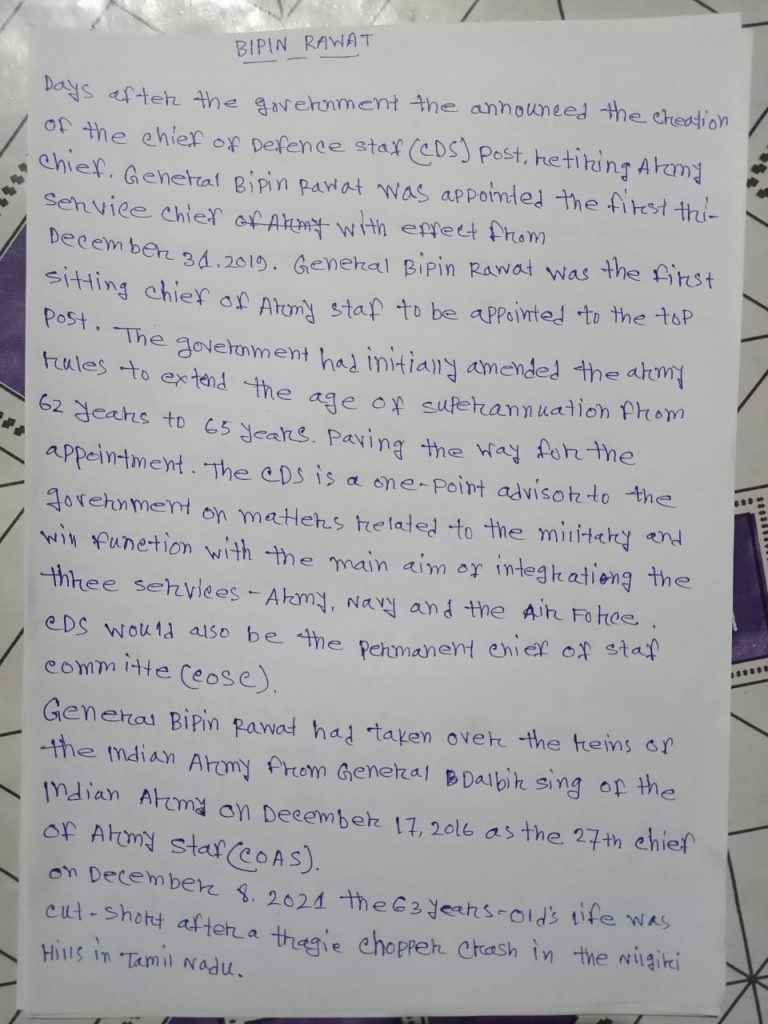 BIPIN RAWAT
Days after the government the announced the creation
of the chief of Defence staf (CDS) post, retiring Army
chief, General Bipin Rawat was appointed the first thi-
service chief of Army with effect from
December 31.2019. General Bipin Rawat was the first
sitting chief of Army staf to be appointed to the top
post. The government had initially amended the army
rules to extend the age of superannuation from
62 years to 65 years. Paving the way for the
appointment. The CDS is a one-point advisor to the
government on matters related to the military and
will function with the main aim of integrationg the
three services - Army, Navy and the Air Force.
CDS would also be the permanent chief of staf
committe (cose).
General Bipin Rawat had taken over the reins of
the Indian Army from General Dalbir sing of the
Indian Army on December 17, 2016 as the 27th chief
of Army staf (COAS).
on December 8, 2021 the 63 years-old's life was
cut-short after a tragic chopper crash in the Nilgiri
Hills in Tamil Nadu.